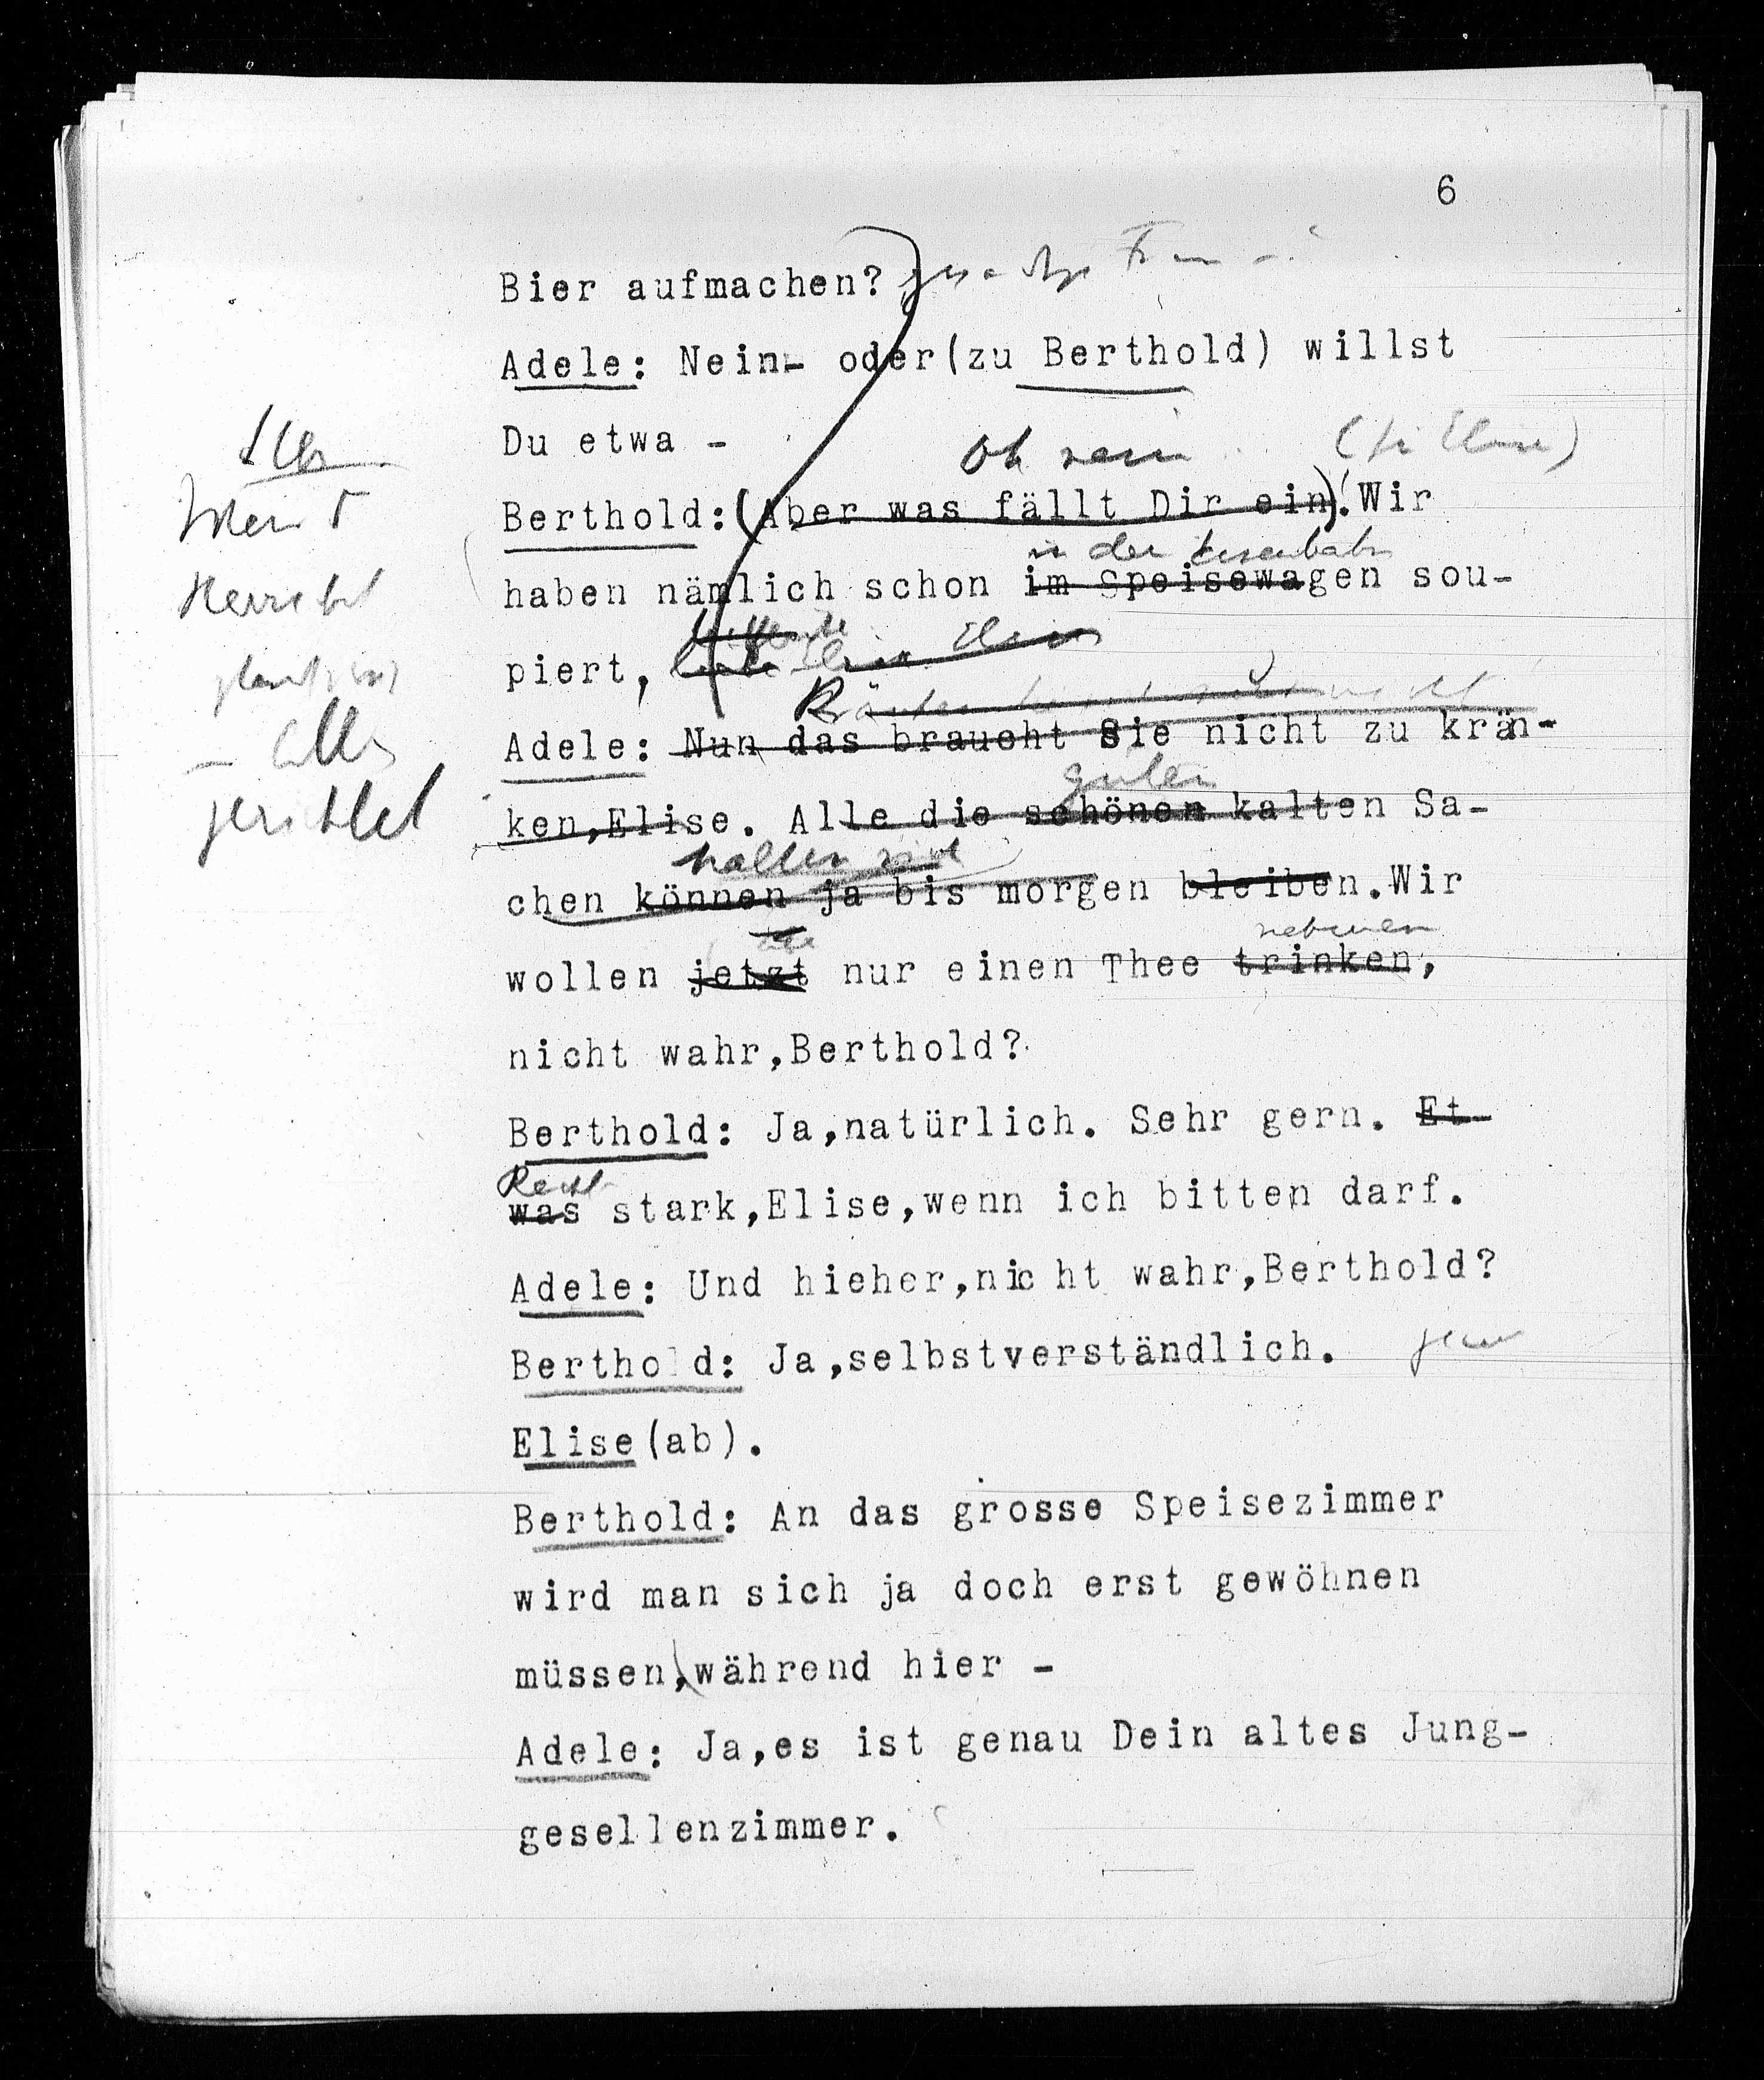 6
Bier aufmachen?
Adele: Nein- oder(zu Berthold) willst
Du etwa -
Oh nein
Berthold:(Aber was fällt Dir ein).Wir
in der Eisenbahn
haben nämlich schon im Speisewagen sou-
piert,
Adele: Nun das braucht Sie nicht zu krän-
guten
ken,Elise. Alle die schönen kalten Sa-
halten sich
chen können ja bis morgen bleiben.Wir
nehmen
wollen jetzt nur einen Thee trinken,
nicht wahr,Berthold?
Berthold: Ja,natürlich. Sehr gern. Et-
Recht
was stark,Elise,wenn ich bitten darf.
Adele: Und hieher,nicht wahr,Berthold?
Berthold: Ja,selbstverständlich.
Elise(ab).
Berthold: An das grosse Speisezimmer
wird man sich ja doch erst gewöhnen
müssen,während hier -
Adele: Ja,es ist genau Dein altes Jung-
gesellenzimmer.
gerichtet